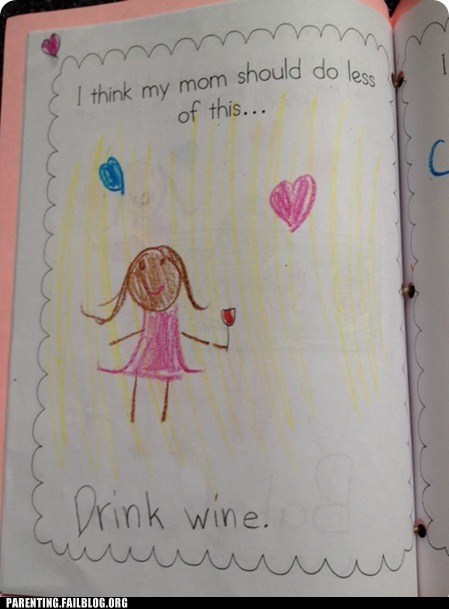 I think my mom should do less
of this...
I
C
Drink wine.
PARENTING.FAILBLOG.ORG